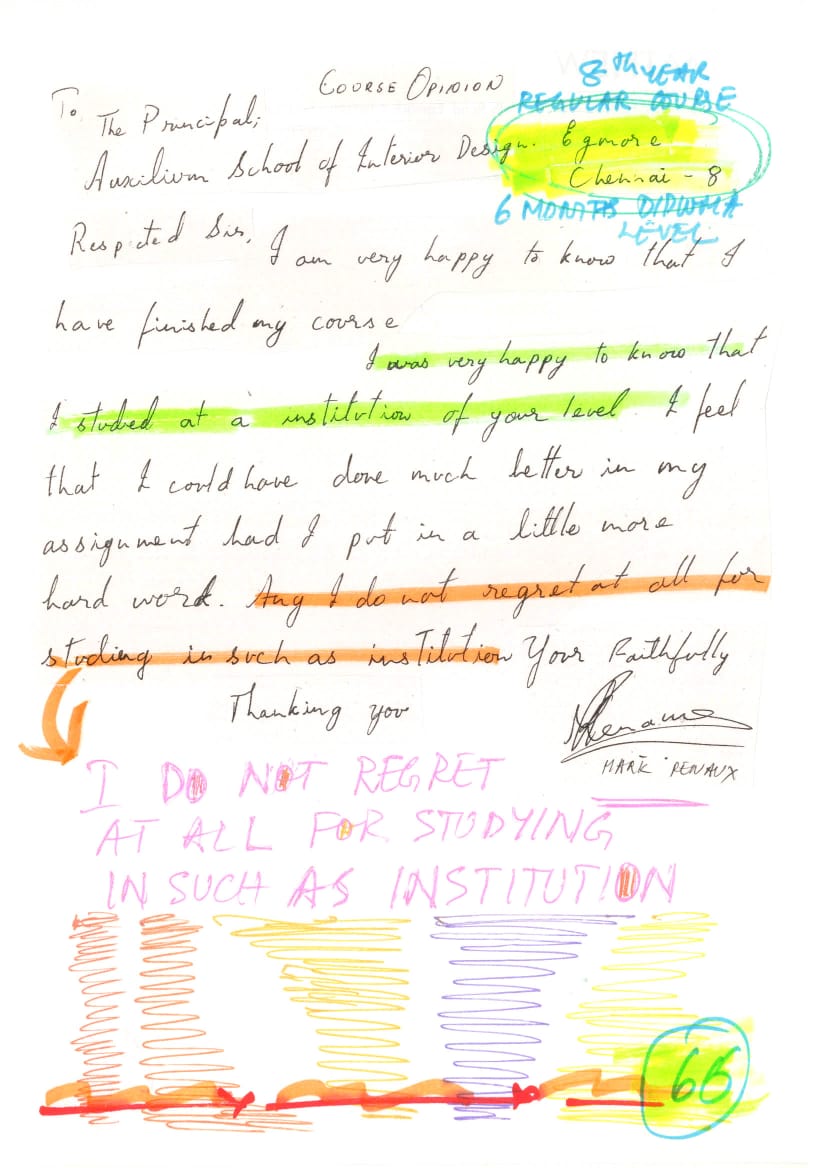 COURSE OPINION
8th YEAR
REGULAR COURSE
To
The Principal,
Auxilium School of Interior Design. Egmore
Chennai - 8
6 MONTHS DIPLOMA
LEVEL
Respected Sir,
I am very happy to know that I
have finished my course
I was very happy to know that
I studied at a institution of your level. I feel
that I could have done much better in my
assignment had I put in a little more
hard work. Any I do not regret at all for
studing in such as institution Your Faithfully
Thanking you
MARK RENAUX
I DO NOT REGRET
AT ALL FOR STUDYING
IN SUCH AS INSTITUTION